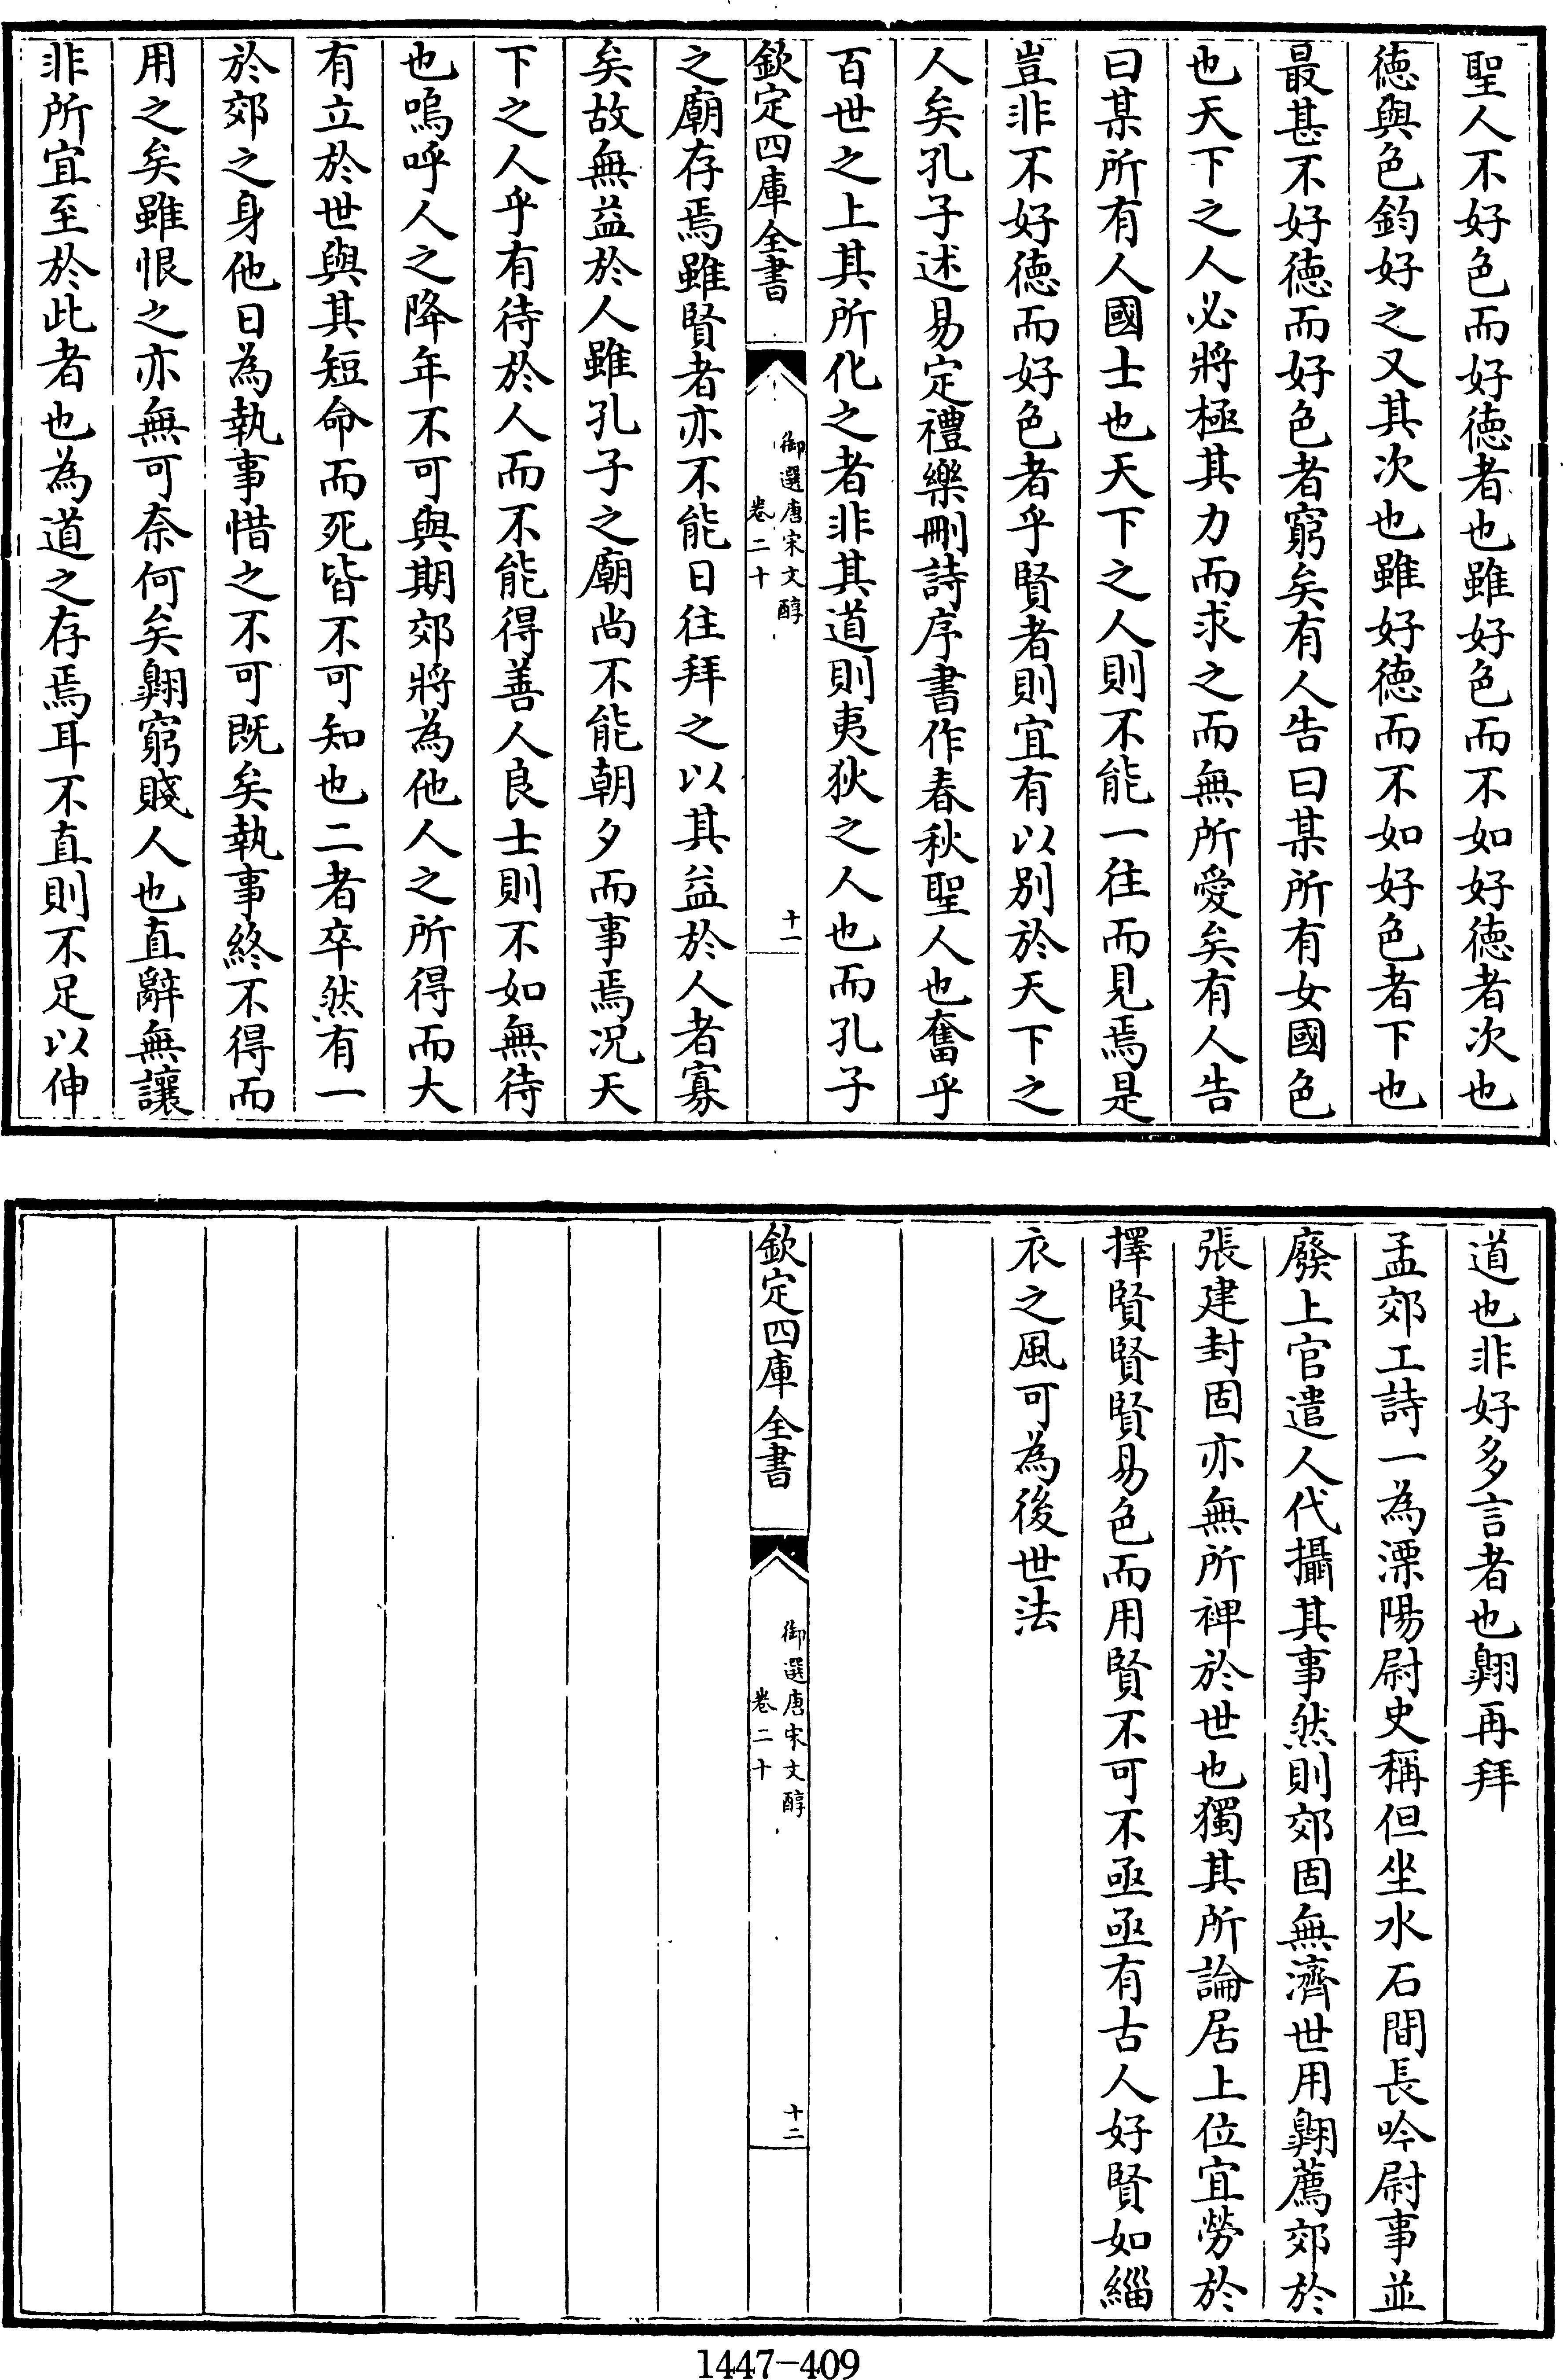 聖人不好色而好德者也雖好色而不如好德者次也
德與色鈞好之又其次也雖好德而不如好色者下也
最甚不好德而好色者窮矣有人告曰某所有女國色
也天下之人必將極其力而求之而無所愛矣有人告
曰某所有人國士也天下之人則不能一往而見焉是
豈非不好德而好色者乎賢者則宜有以别於天下之
人矣孔子述易定禮樂刪詩序書作春秋聖人也奮乎
百世之上其所化之者非其道則夷狄之人也而孔子
欽定四庫全書
御選唐宋文醇
卷二十
十一
之廟存焉雖賢者亦不能日往拜之以其益於人者寡
矣故無益於人雖孔子之廟尚不能朝夕而事焉況天
下之人乎有待於人而不能得善人良士則不如無待
也嗚呼人之降年不可與期郊將為他人之所得而大
有立於世與其短命而死皆不可知也二者卒然有一
於郊之身他日為執事惜之不可既矣執事終不得而
用之矣雖恨之亦無可奈何矣翺窮賤人也直辭無讓
非所宜至於此者也為道之存焉耳不直則不足以伸
道也非好多言者也翺再拜
孟郊工詩一為溧陽尉史稱但坐水石間長吟尉事並
廢上官遣人代攝其事然則郊固無濟世用翺薦郊於
張建封固亦無所裨於世也獨其所論居上位宜勞於
擇賢賢賢易色而用賢不可不亟亟有古人好賢如緇
衣之風可為後世法
欽定四庫全書
御選唐宋文醇
卷二十
十二
1447-409